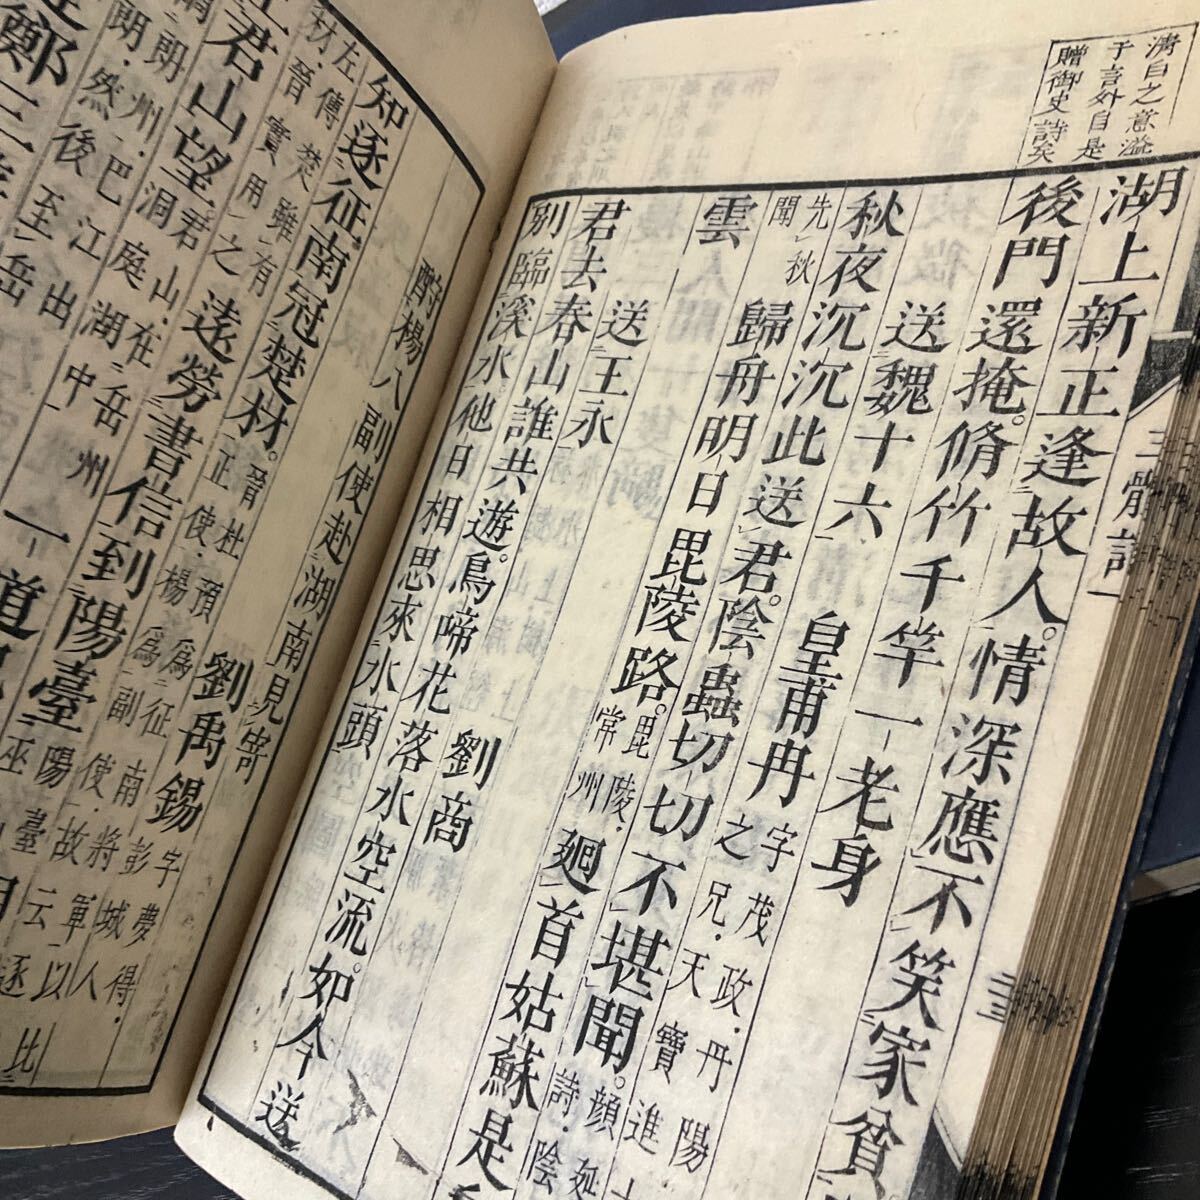 清白之意溢
于言外自是
贈御史詩矣
三體詩一
二十三
湖上新正逢故人。情深應不笑家貧。
後門還掩。脩竹千竿一老身
送魏十六　皇甫冉　字茂政・丹陽
之兄・天寶進士
秋夜沉沉此送君。陰蟲切切不堪聞。顏延
詩・陰
先秋
聞
歸舟明日毘陵路。毘陵・
常州
廻首姑蘇是
雲
送王永　劉商
君去春山誰共遊。鳥啼花落水空流。如今送
別臨溪水他日相思來水頭
酧楊八副使赴湖南見寄　劉禹錫　字夢得・
彭城人
知逐征南冠楚材。晉杜預為征南將軍
左傳楚雖有
材・晉實用之
正使・楊為副使・故云以
遠勞書信到陽臺
陽臺
巫
君山望君山・在岳州
洞庭湖中
朗州・巴江出
朗・然後至岳
一
道
鄭
逐
比